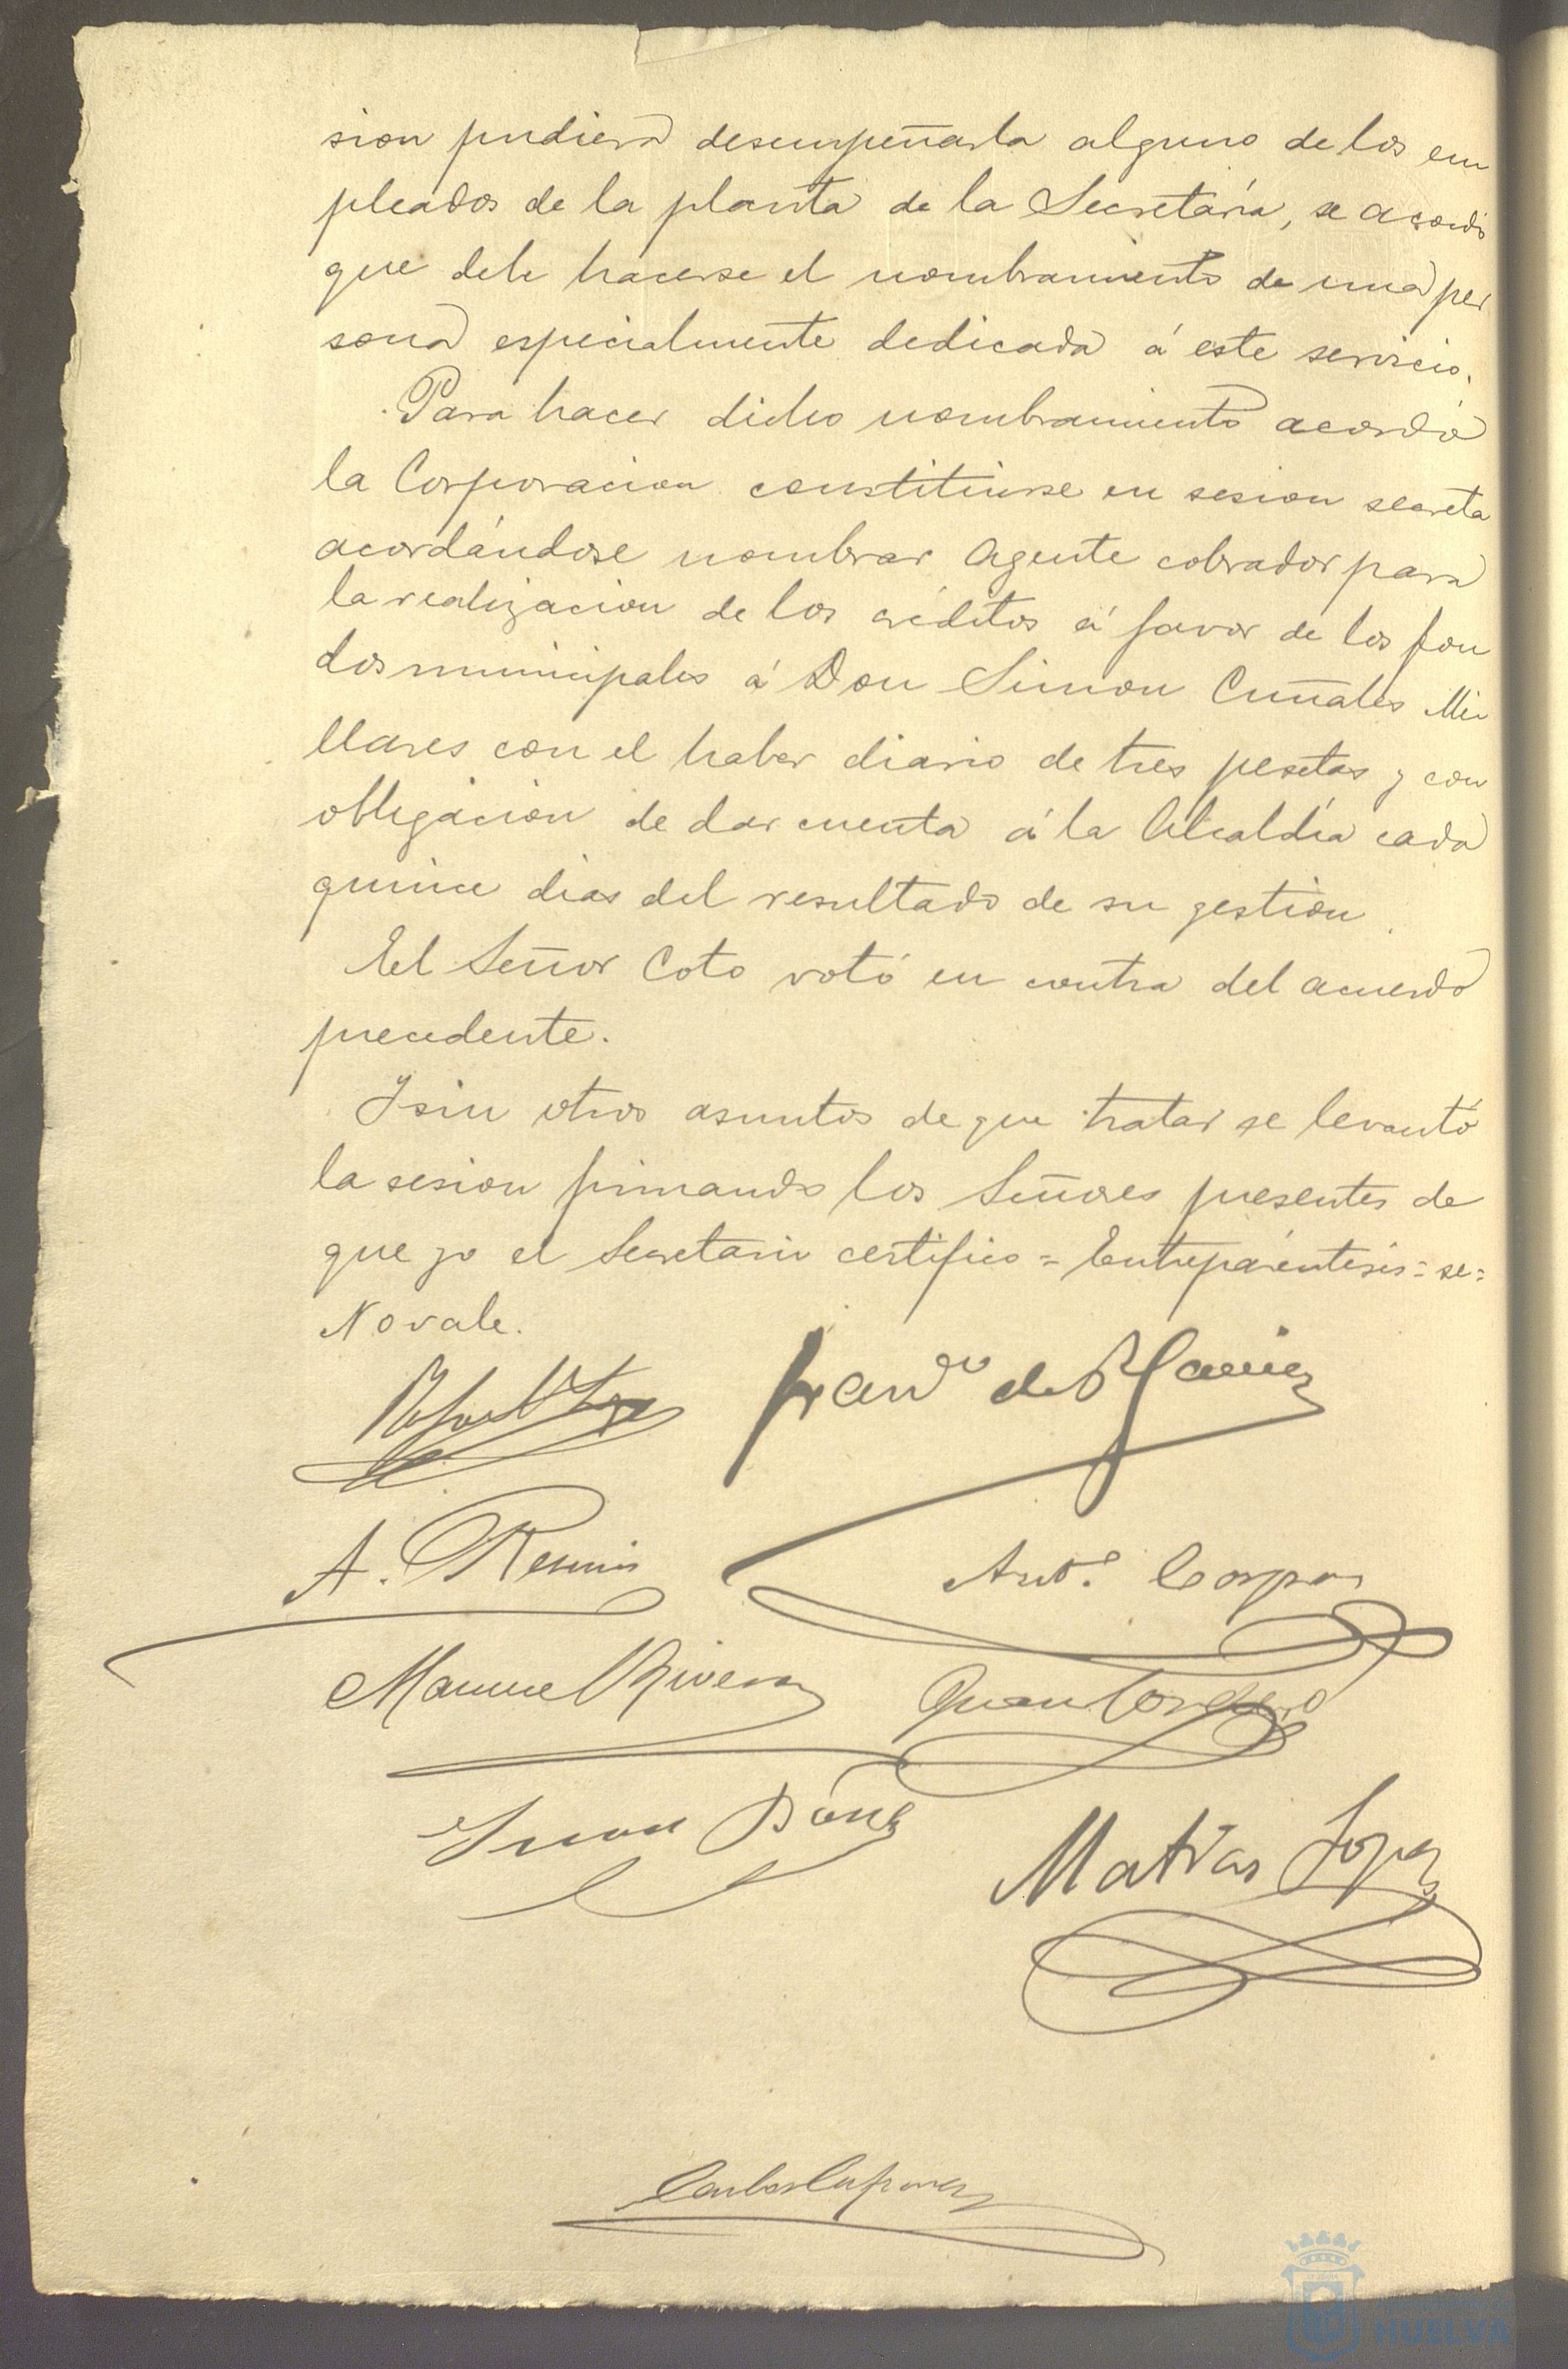 sion pudiera desempeñarla alguno de los em
pleados de la planta de la Secretaría, se acordó
que debe hacerse el nombramiento de una per
sona especialmente dedicada á este servicio.
Para hacer dicho nombramiento acordó
la Corporacion constituirse en sesion secreta
acordándose nombrar Agente cobrador para
la realizacion de los créditos á favor de los fon
dos municipales á Don Simon Cuñales Mi
llares con el haber diario de tres pesetas y con
obligacion de dar cuenta á la Alcaldía cada
quince dias del resultado de su gestion.
El Señor Coto votó en contra del acuerdo
precedente.
Y sin otros asuntos de que tratar se levantó
la sesion firmando los Señores presentes de
que yo el Secretario certifico = Entreparéntesis = se =
No vale.
Franco de P.
A.
Anto. Corpas
Manuel Rivera
Juan Cordero
Juan
Matías Lopez
Carlos
HUELVA